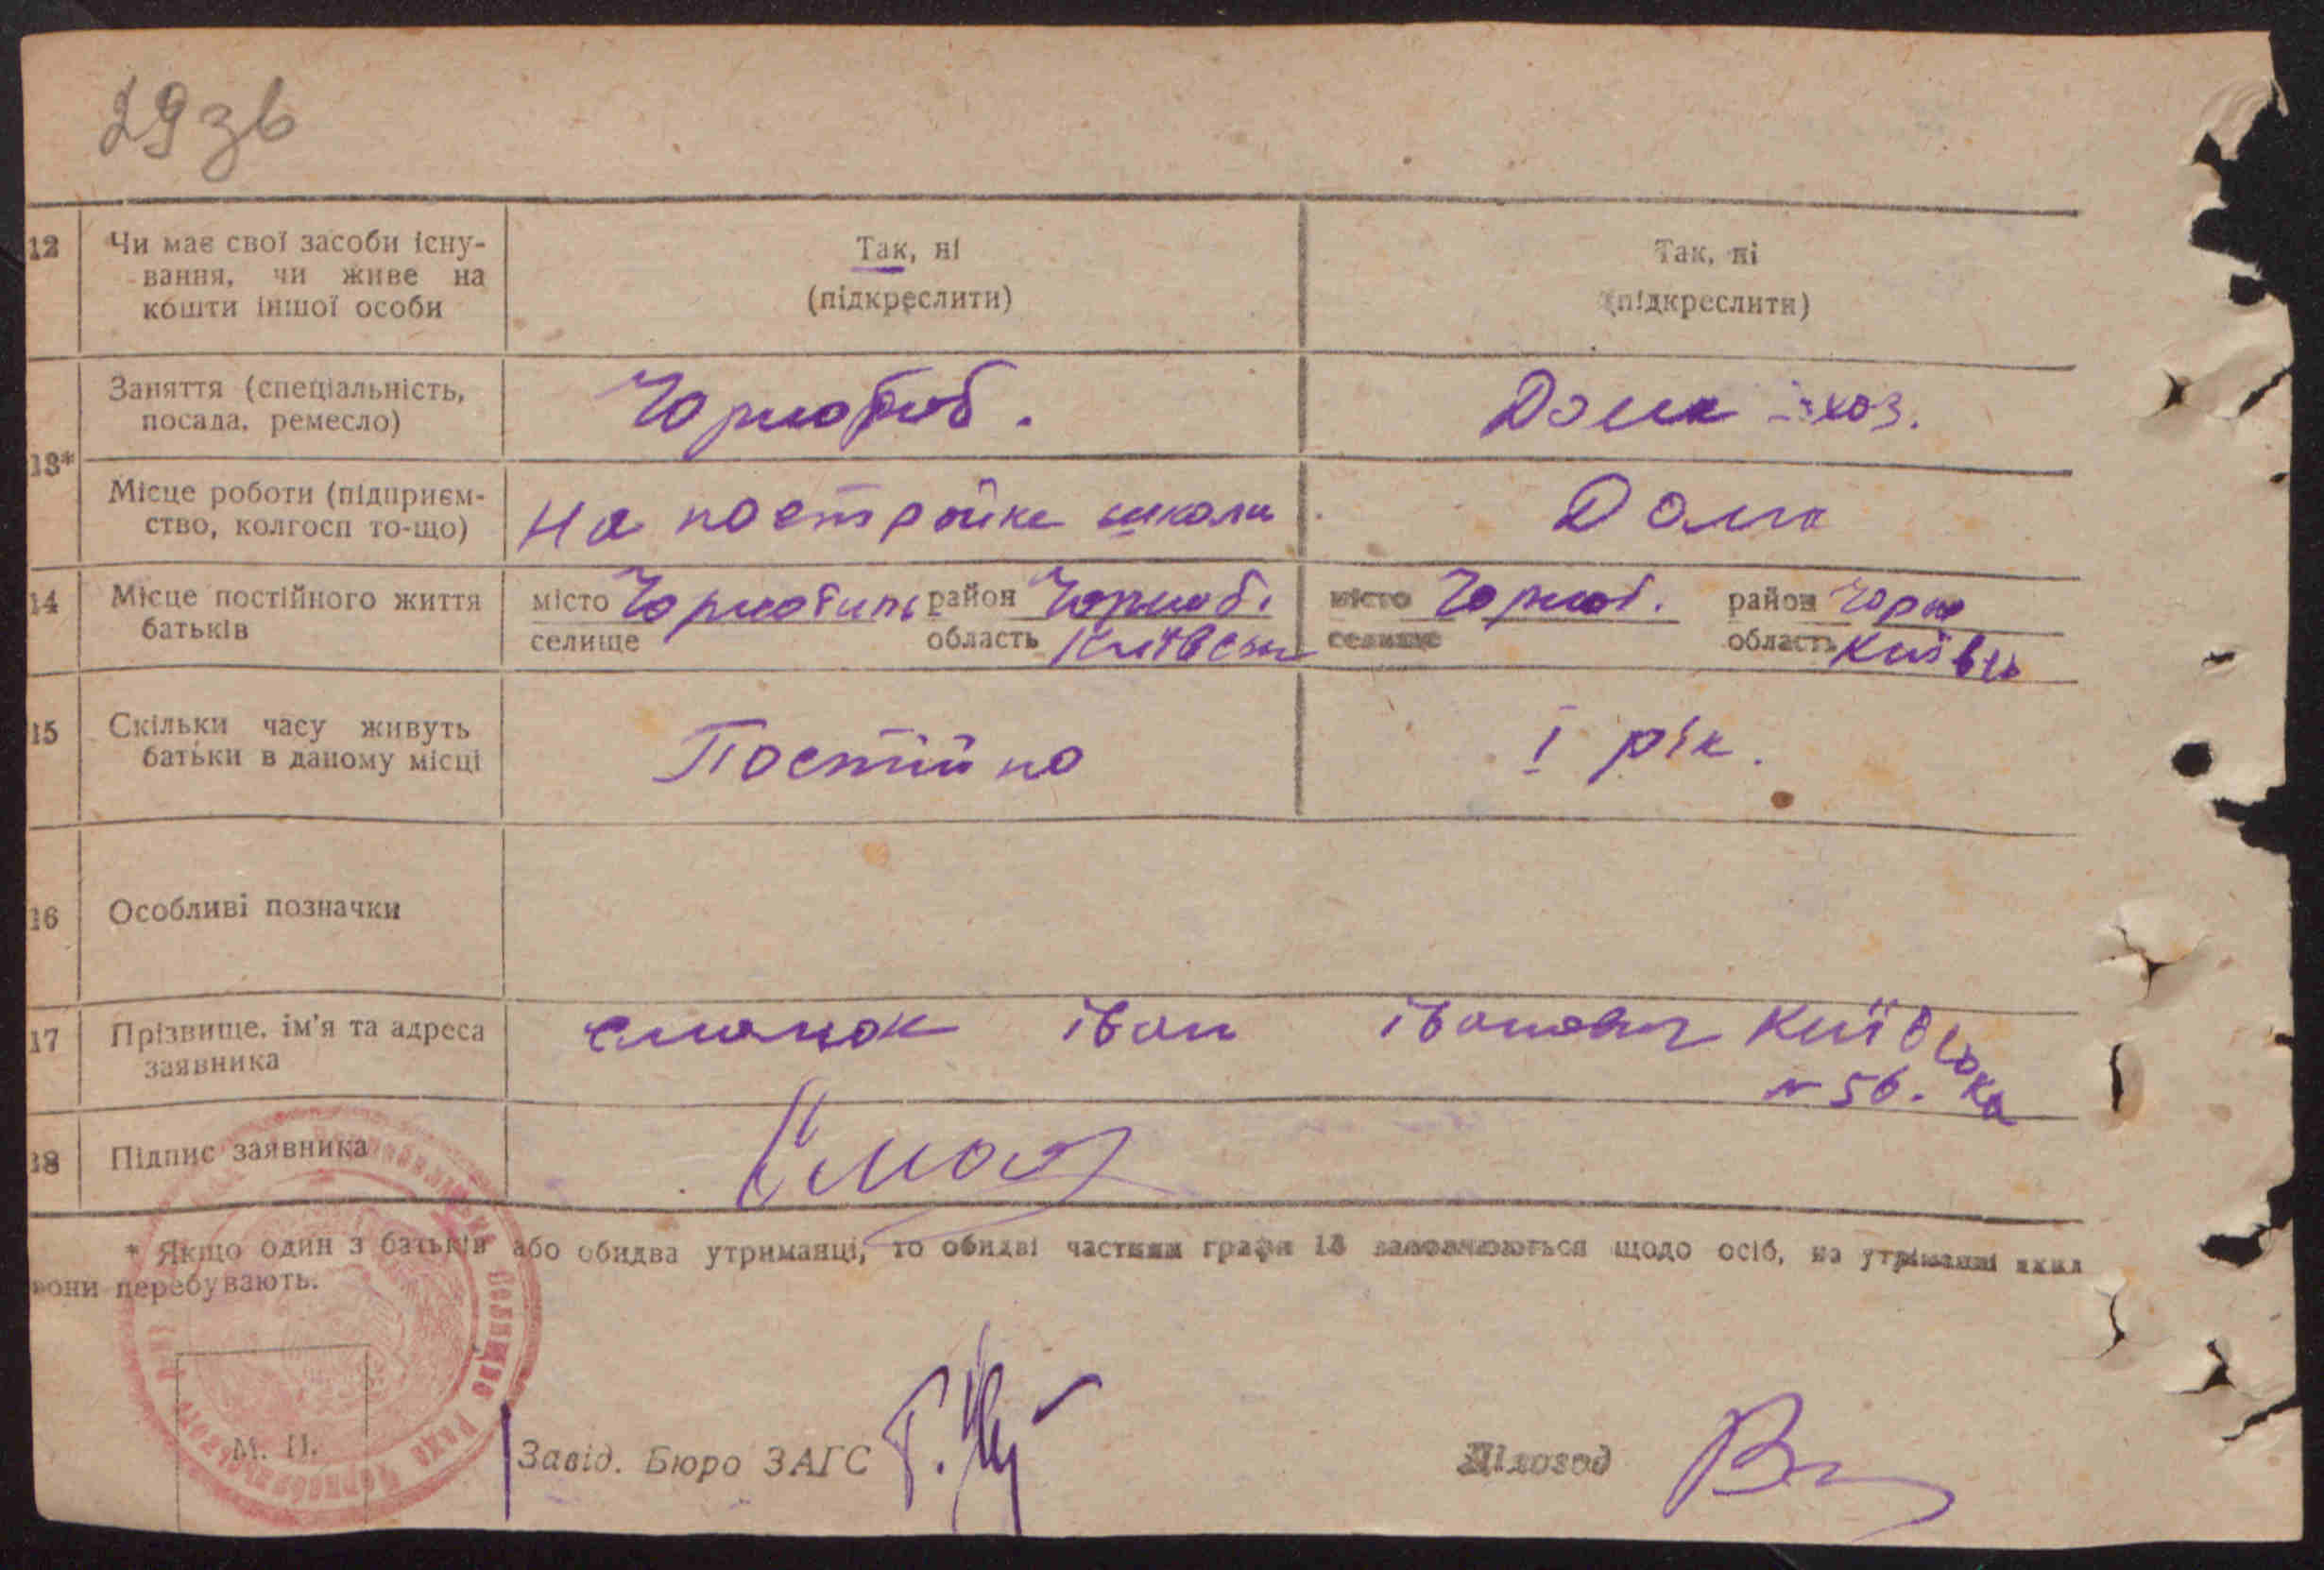 29 зв
12 Чи має свої засоби існу-
вання, чи живе на
кошти іншої особи
Так, ні
(підкреслити)
Так, ні
(підкреслити)
13*
Заняття (спеціальність,
посада, ремесло)
Чорнороб.
Домохоз.
Місце роботи (підприєм-
ство, колгосп то-що)
На постройке школи
Дома
14 Місце постійного життя
батьків
місто Чорнобиль район Чорноб.
селище область Київськ
місто Чорноб. район Чорно
селище область Київсь
15 Скільки часу живуть
батьки в даному місці
Постійно
1 рік.
16 Особливі позначки
17 Прізвище, ім'я та адреса
заявника
іван іванович Київська
№ 56.
18 Підпис заявника
* Якщо один з батьків або обидва утриманці, то обидві частини графи 13 заповнюються щодо осіб, на утриманні яких
вони перебувають.
М. П.
Завід. Бюро ЗАГС
Діловод